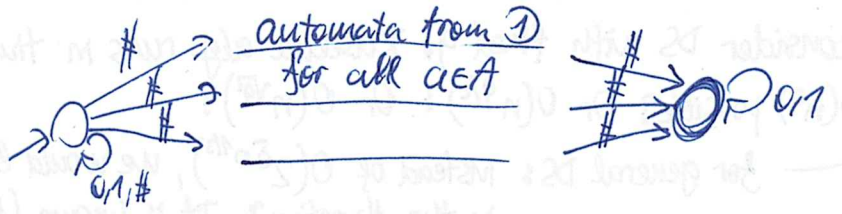 automata from ①
for all a∈A
# # #
# # #
0,1,#
0,1